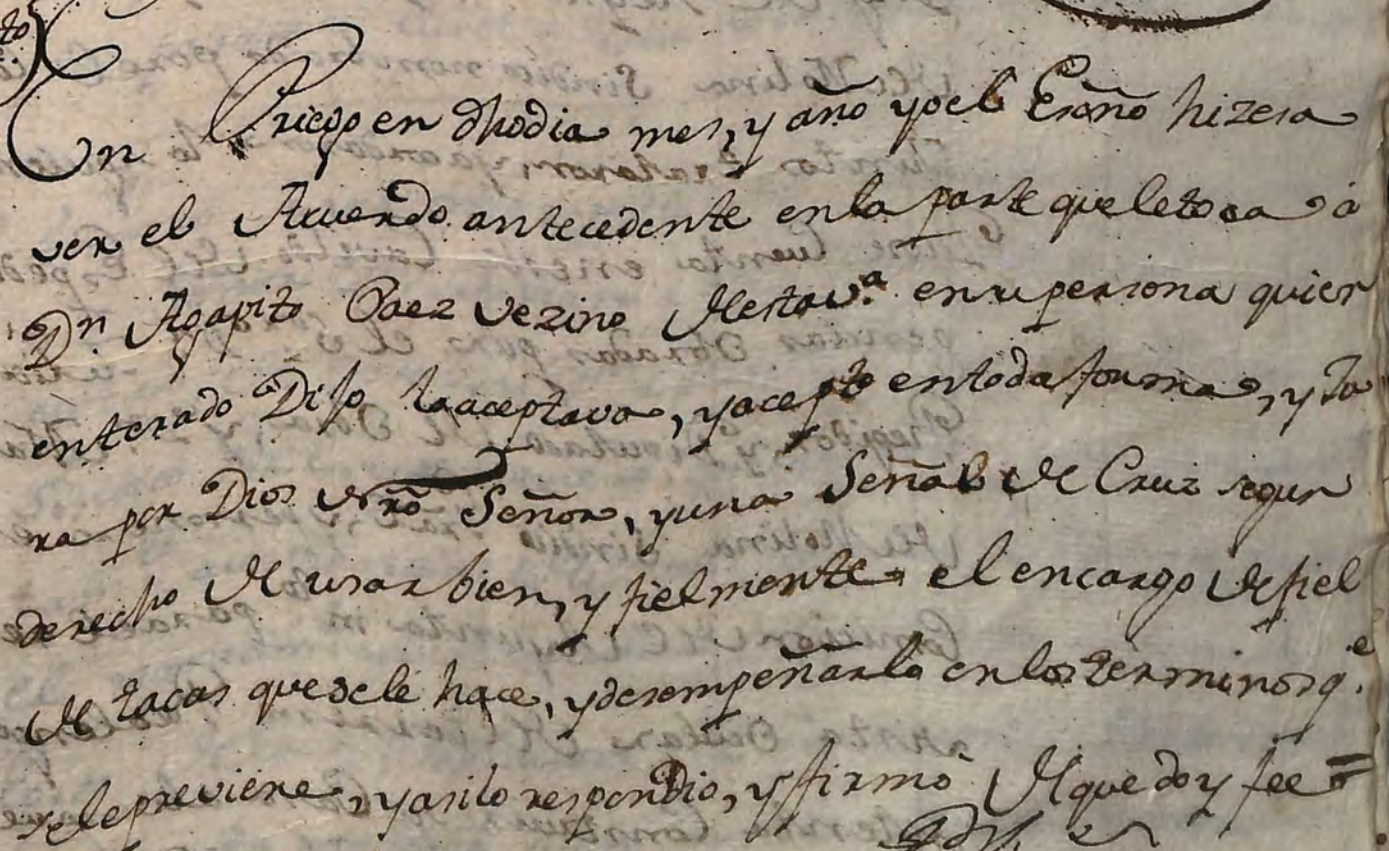 En Priego en dho dia mes, y año yo el Esscño hize sa
ver el Acuerdo antecedente en la parte que le toca à
Dn Agapito Paez vezino de esta v.ª en su persona quien
enterado Dijo la aceptava, y acepto en toda forma, y Ju
ra por Dios Nrô Señor, y una Señal de Cruz segun
derecho de usar bien, y fielmente el encargo de fiel
de tacas que se le hace, y desempeñarlo en los terminos q.e
se le previene, y asi lo respondio, y firmò de que doy fee =